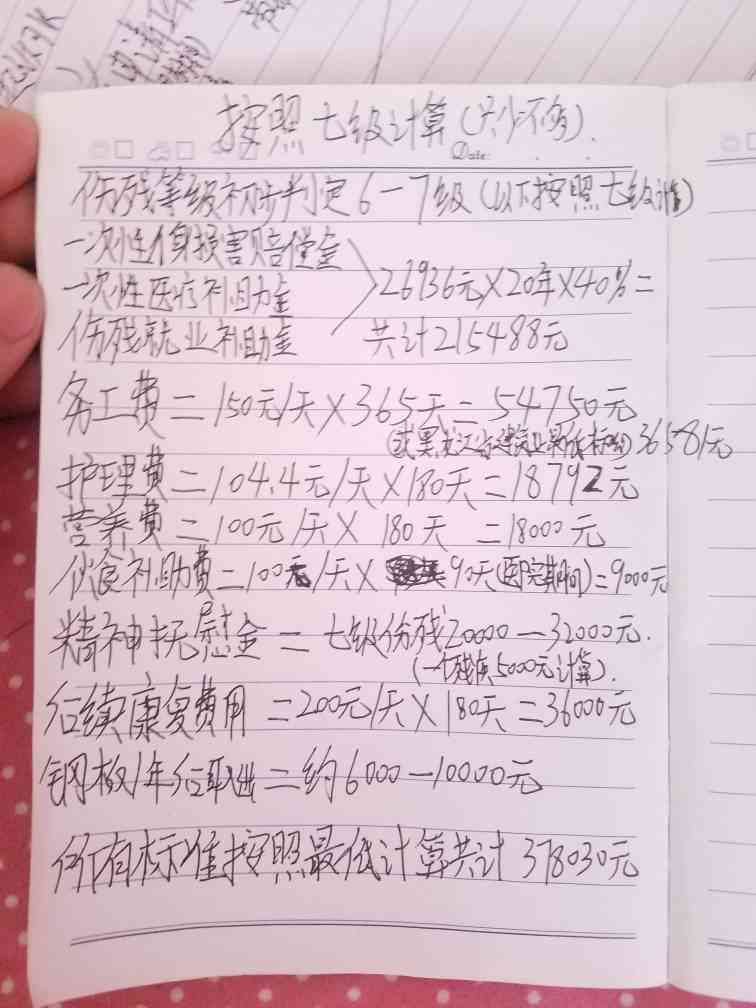 申请工伤
按照七级计算(只少不多).
Date:
伤残等级初步判定6一7级(以下按照七级计算)
一次性伤身损害赔偿金
一次性医疗补助金
26936元×20年×40%=
伤残就业补助金
共计215488元
务工费=150元/天×365天=54750元
(或黑龙江省建筑业最低标准)36581元
护理费=104.4元/天×180天=18792元
营养费=100元/天×180天=18000元
伙食补助费=100元/天×90天(医院期间)=9000元
精神抚慰金=七级伤残20000一32000元.
(一个残疾5000元计算).
后续康复费用=200元/天×180天=36000元
钢板1年后取出=约6000一10000元
所有标准按照最低计算共计378030元